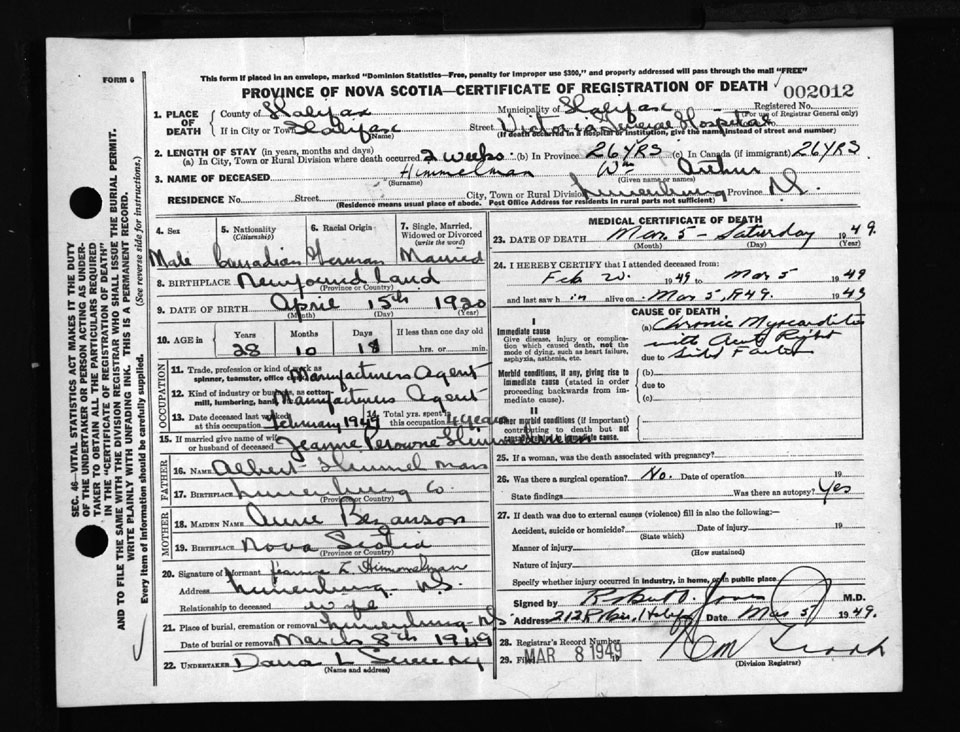 This form if placed in an envelope, marked "Dominion Statistics—Free, penalty for improper use $300," and properly addressed will pass through the mail "FREE"
FORM 6
PROVINCE OF NOVA SCOTIA—CERTIFICATE OF REGISTRATION OF DEATH
002012
1. PLACE OF DEATH
County of Halifax Municipality of Halifax Registered No.
(For use of Registrar General only)
If in City or Town Halifax Street Victoria General Hospital No.
(Name) (If death occurred in a hospital or institution, give the name instead of street and number)
2. LENGTH OF STAY (in years, months and days)
(a) In City, Town or Rural Division where death occurred 2 weeks (b) In Province 26 YRS (c) In Canada (if immigrant) 26 YRS
3. NAME OF DECEASED Himmelman Wm Arthur
(Surname) (Given name or names)
RESIDENCE No. Street City, Town or Rural Division Lunenburg Province N.S.
(Residence means usual place of abode. Post Office Address for residents in rural parts not sufficient)
4. Sex 5. Nationality (Citizenship) 6. Racial Origin 7. Single, Married, Widowed or Divorced (write the word)
Male Canadian German Married
8. BIRTHPLACE Newfoundland
(Province or Country)
9. DATE OF BIRTH April 15th 1920
(Month) (Day) (Year)
10. AGE Years Months Days If less than one day old
28 10 18 hrs. or min.
OCCUPATION
11. Trade, profession or kind of work as spinner, teamster, office clerk, etc. Manufacturers Agent
12. Kind of industry or business, as cotton-mill, lumbering, bank, etc. Manufacturers Agent
13. Date deceased last worked at this occupation February 1949 14. Total yrs. spent in this occupation 4 years
15. If married give name of wife or husband of deceased Jeanne Perowne Himmelman
FATHER
16. NAME Albert Himmelman
17. BIRTHPLACE Lunenburg Co.
(Province or Country)
MOTHER
18. MAIDEN NAME Anne Bezanson
19. BIRTHPLACE Nova Scotia
(Province or Country)
20. Signature of informant Jeanne L. Himmelman
Address Lunenburg N.S.
Relationship to deceased wife
21. Place of burial, cremation or removal Lunenburg N.S
Date of burial or removal March 8th 1949
22. UNDERTAKER Dana L Sweeny
(Name and address)
MEDICAL CERTIFICATE OF DEATH
23. DATE OF DEATH Mar. 5 - Saturday 1949.
(Month) (Day) (Year)
24. I HEREBY CERTIFY that I attended deceased from:
Feb 1949 to Mar 5 1949
and last saw h im alive on Mar 5, 1949. 1949
CAUSE OF DEATH
I
Immediate cause
Give disease, injury or complication which caused death, not the mode of dying, such as heart failure, asphyxia, asthenia, etc.
(a) Chronic Myocarditis
with Acute Right
due to Sided Failure
Morbid conditions, if any, giving rise to immediate cause (stated in order proceeding backwards from immediate cause).
(b)
due to
(c)
II
Other morbid conditions (if important) contributing to death but not causally related to immediate cause.
25. If a woman, was the death associated with pregnancy?
26. Was there a surgical operation? No. Date of operation 19
State findings Was there an autopsy? Yes
27. If death was due to external causes (violence) fill in also the following:—
Accident, suicide or homicide? Date of injury 19
(State which)
Manner of injury
(How sustained)
Nature of injury
Specify whether injury occurred in industry, in home, or in public place
Signed by Robert O. Jones M.D.
Address Halifax Date Mar 5 1949.
28. Registrar's Record Number
29. Filed MAR 8 1949
(Division Registrar)
SEC. 46—VITAL STATISTICS ACT MAKES IT THE DUTY
OF THE UNDERTAKER OR PERSON ACTING AS UNDERTAKER TO OBTAIN ALL THE PARTICULARS REQUIRED
IN THE "CERTIFICATE OF REGISTRATION OF DEATH"
AND TO FILE THE SAME WITH THE DIVISION REGISTRAR WHO SHALL ISSUE THE BURIAL PERMIT.
WRITE PLAINLY WITH UNFADING INK. THIS IS A PERMANENT RECORD.
Every item of information should be carefully supplied. (See reverse side for instructions.)